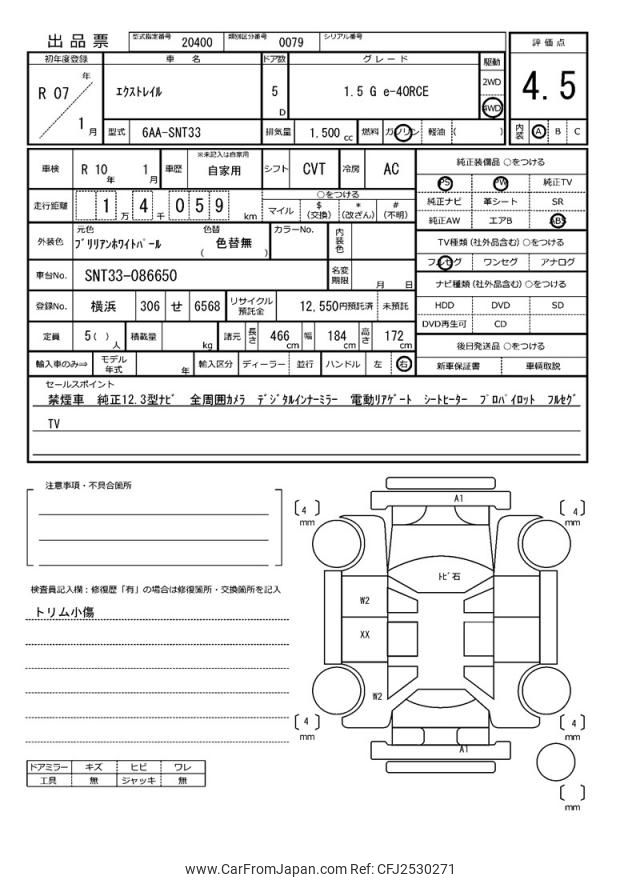 出品票 型式指定番号 20400 類別区分番号 0079 シリアル番号
評価点
4.5
内装 A B C
初年度登録 車名 ドア数 グレード 駆動
R 07 年 1 月
エクストレイル 5 D 1.5 G e-4ORCE 2WD
4WD
型式 6AA-SNT33 排気量 1.500 cc 燃料 ガソリン 軽油 ( )
車検 R 10 年 1 月 車歴 ※未記入は自家用 自家用 シフト CVT 冷房 AC
走行距離 1 万 4 千 0 5 9 km
○をつける
マイル $ (交換) * (改ざん) # (不明)
外装色 元色 ブリリアンホワイトパール 色替 ( 色替無 ) カラーNo. 内装色
車台No. SNT33-086650 名変期限 月 日
登録No. 横浜 306 せ 6568 リサイクル預託金 12,550円預託済 未預託
定員 5( ) 人 積載量 kg 諸元 長さ 466 cm 幅 184 cm 高さ 172 cm
輸入車のみ⇒ モデル年式 年 輸入区分 ディーラー 並行 ハンドル 左 右
純正装備品 ○をつける
PS PW 純正TV
純正ナビ 革シート SR
純正AW エアB ABS
TV種類 (社外品含む) ○をつける
フルセグ ワンセグ アナログ
ナビ種類 (社外品含む) ○をつける
HDD DVD SD
DVD再生可 CD
後日発送品 ○をつける
新車保証書 車輌取説
セールスポイント
禁煙車 純正12.3型ナビ 全周囲カメラ デジタルインナーミラー 電動リアゲート シートヒーター プロパイロット フルセグ
TV
注意事項・不具合箇所
検査員記入欄：修復歴「有」の場合は修復箇所・交換箇所を記入
トリム小傷
ドアミラー キズ ヒビ ワレ
工具 無 ジャッキ 無
A1
[4] mm
[4] mm
トビ石
W2
XX
W2
[4] mm
[4] mm
A1
[ ] mm
www.CarFromJapan.com Ref: CFJ2530271